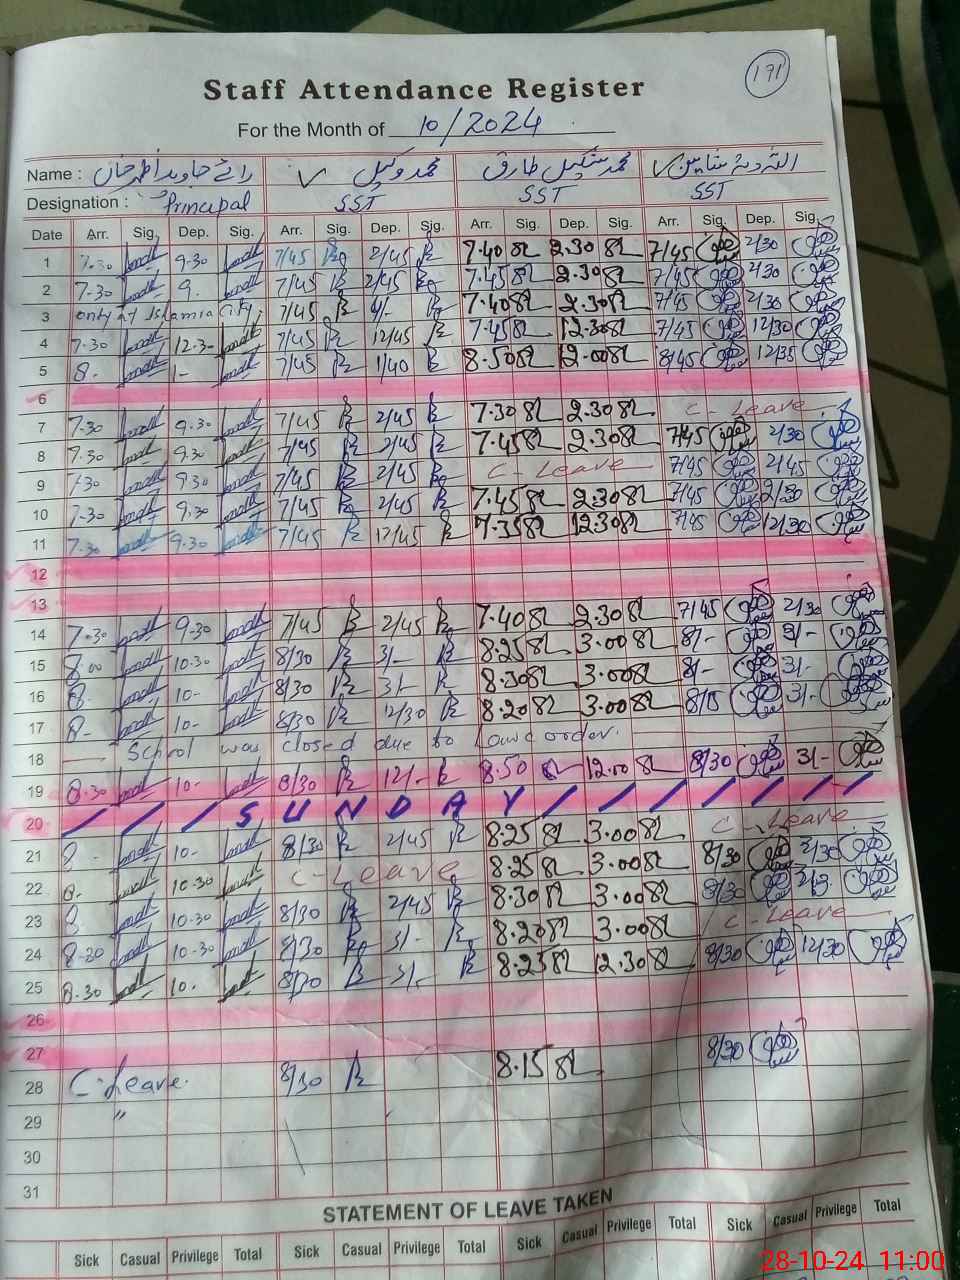 171
Staff Attendance Register
For the Month of 10/2024
Name : رائے جاوید خاں محمد وکیل محمد شکیل طارق شاہین
Designation : Principal SST SST SST
Date Arr. Sig. Dep. Sig. Arr. Sig. Dep. Sig. Arr. Sig. Dep. Sig. Arr. Sig. Dep. Sig.
1 7.30 9.30 7/45 2/45 7.40 2.30 7/45 2/30
2 7.30 9. 7/45 2/45 7.45 2.30 7/45 2/30
3 only at Islamia City. 7/45 4/- 7.40 2.30 7/45 2/30
4 7.30 12.3- 7/45 12/45 7.45 12.30 7/45 12/30
5 8- 1- 7/45 1/40 8.50 12.00 8/45 12/35
6
7 7.30 9.30 7/45 2/45 7.30 2.30 C-Leave
8 7.30 9.30 7/45 2/45 7.45 2.30 7/45 2/30
9 7.30 9.30 7/45 2/45 C-Leave 7/45 2/45
10 7.30 9.30 7/45 2/45 7.45 2.30 7/45 2/30
11 7.30 9.30 7/45 12/45 7.35 12.30 7/45 12/30
12
13
14 7.30 9.30 7/45 2/45 7.40 2.30 7/45 2/30
15 8.00 10.30 8/30 3/- 8.25 3.00 8/- 3/-
16 8- 10- 8/30 3/- 8.30 3.00 8/- 3/-
17 8- 10- 8/30 12/30 8.20 3.00 3/-
18 School was closed due to Law & order.
19 8.30 10- 8/30 12/- 8.50 12.00 8/30 3/-
20 / / / S U N D A Y / / / / / / /
21 8- 10- 8/30 2/45 8.25 3.00 C-Leave
22 8- 10.30 C-Leave 8.25 3.00 8/30 2/30
23 8 10.30 8/30 2/45 8.30 3.00 8/30
24 8.30 10.30 8/30 3/- 8.20 3.00 C-Leave
25 8.30 10- 8/30 3/- 8.25 12.30 8/30 12/30
26
27
28 C-Leave. 8/30 8.15 8/30
29 "
30
31
STATEMENT OF LEAVE TAKEN
Sick Casual Privilege Total Sick Casual Privilege Total Sick Casual Privilege Total Sick Casual Privilege Total
28-10-24 11:00